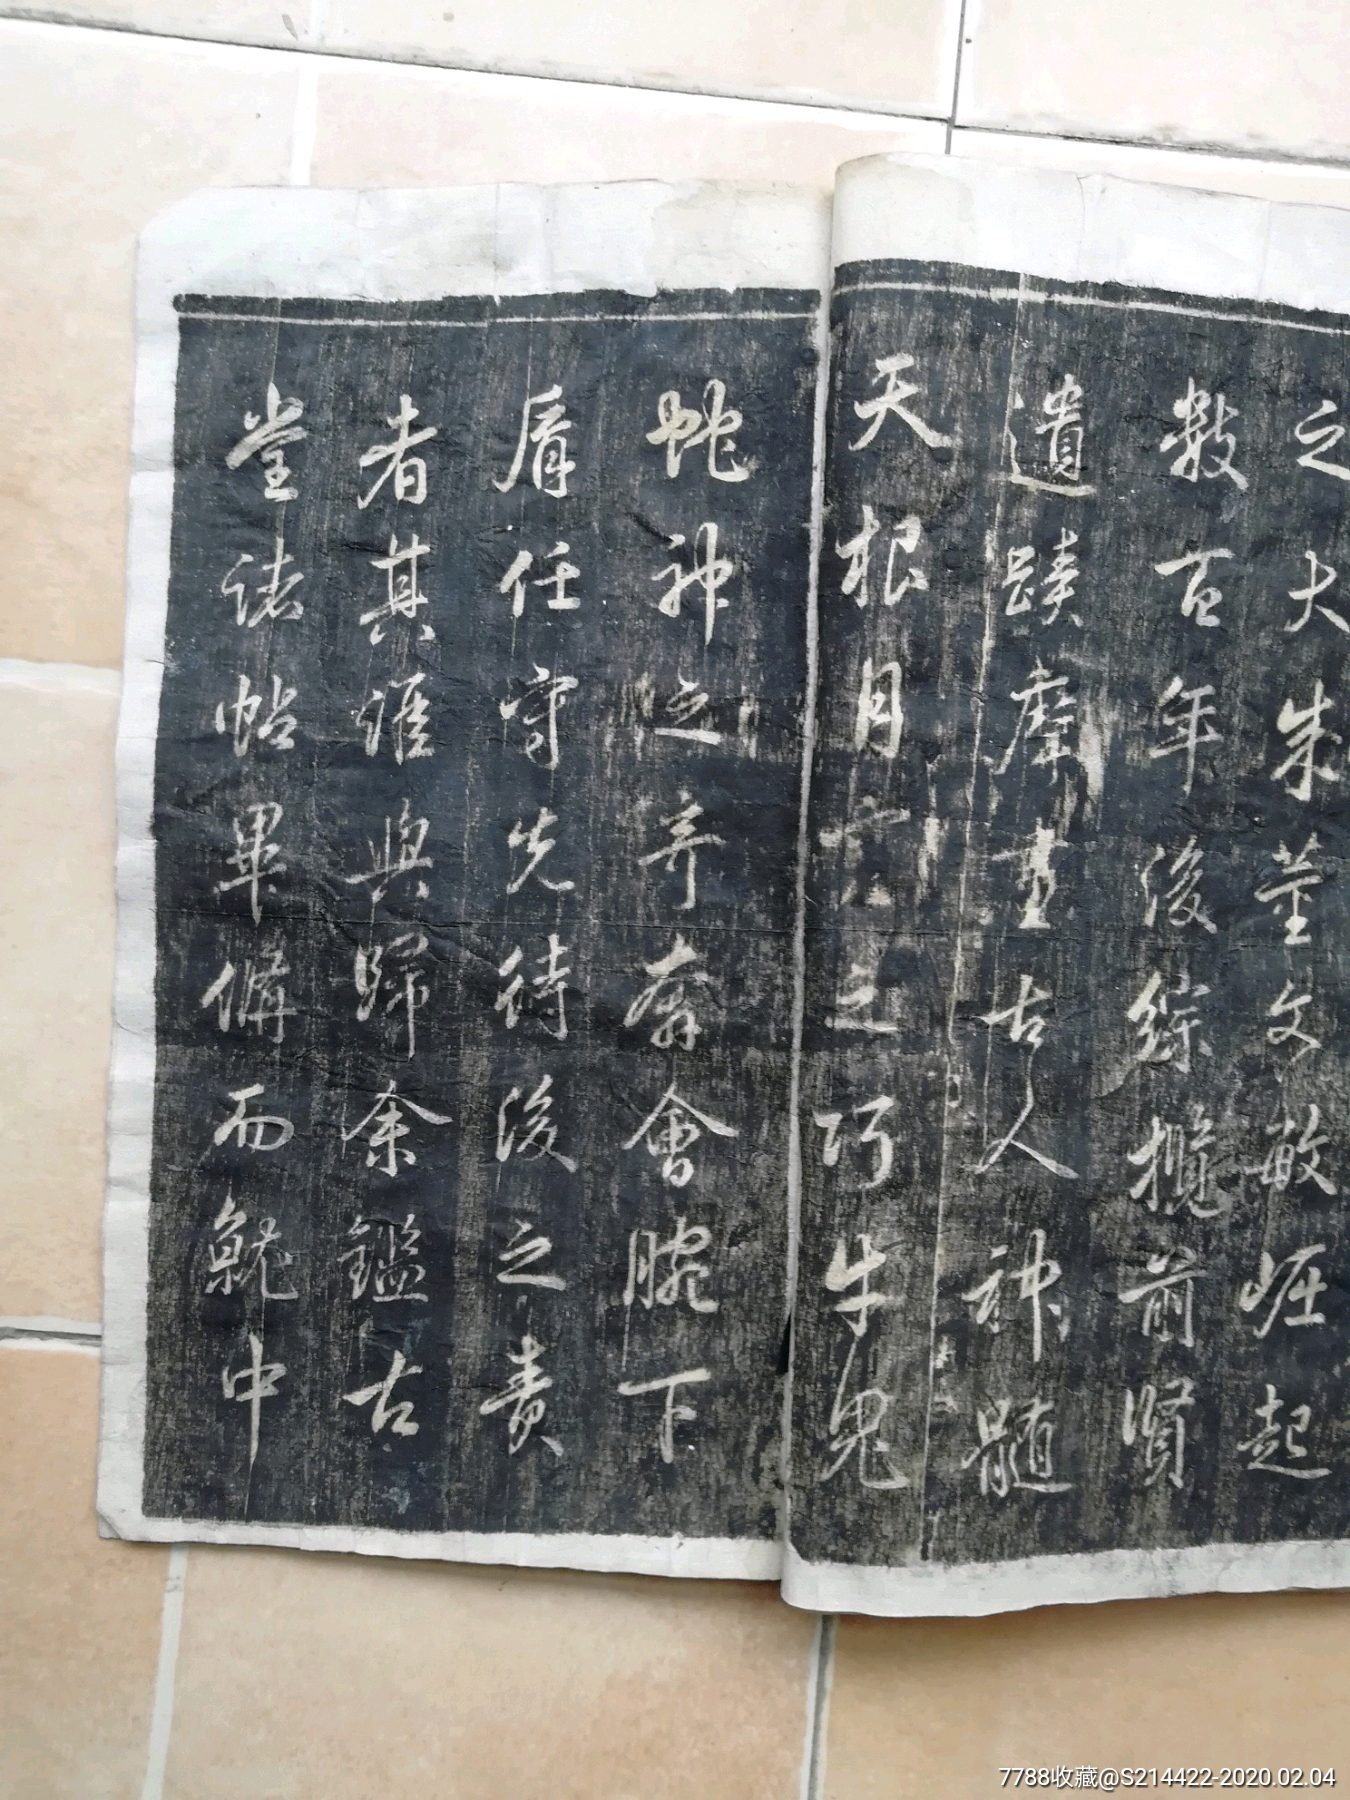 之大成董文敏崛起
数百年後綜攬前賢
遺蹟摩畫古人神髓
天根月穴之巧牛鬼
蛇神之奇奔會腕下
肩任守先待後之責
者其誰與歸余鑑古
堂諸帖畢備而就中
7788收藏@S214422-2020.02.04